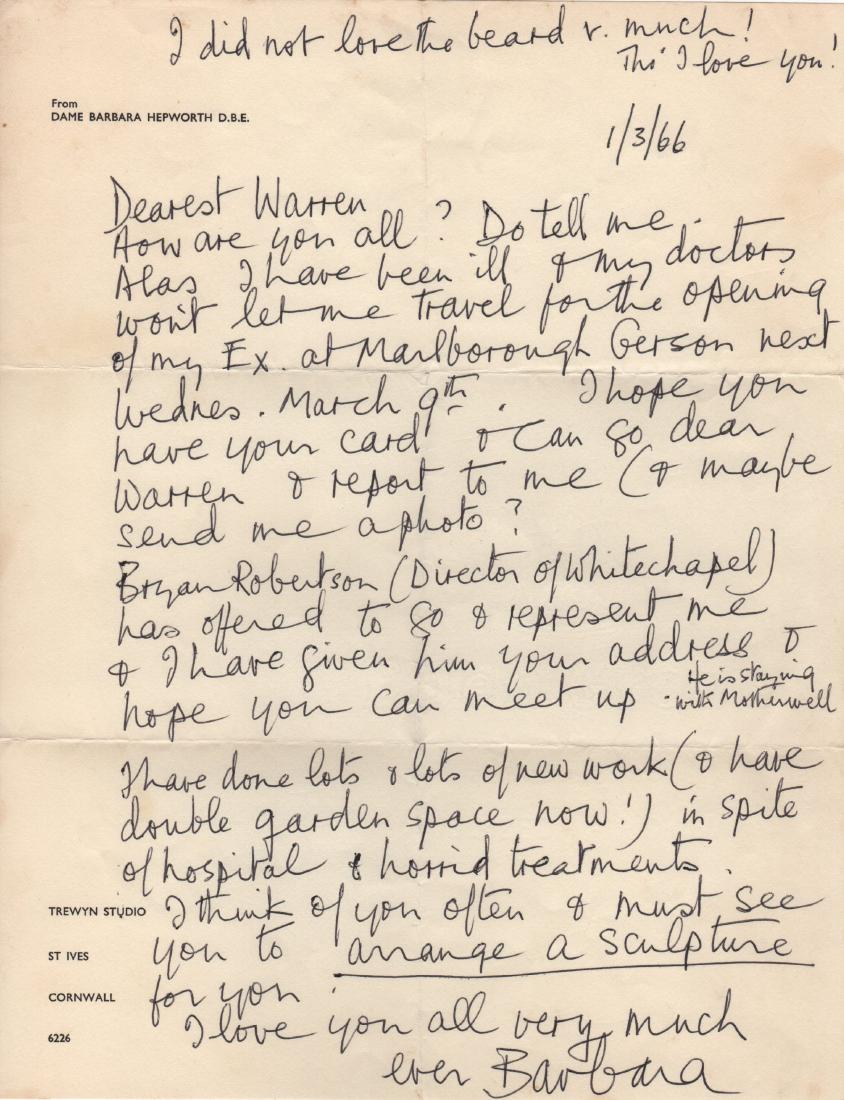 I did not love the beard v. much!
Tho' I love you!
From
DAME BARBARA HEPWORTH D.B.E.
1/3/66
Dearest Warren
How are you all? Do tell me.
Alas I have been ill & my doctors
won't let me travel for the opening
of my Ex. at Marlborough Gerson next
Wednes. March 9th. I hope you
have your card & can go dear
Warren & report to me (& maybe
send me a photo?
Bryan Robertson (Director of Whitechapel)
has offered to go & represent me
& I have given him your address &
hope you can meet up. He is staying
with Motherwell
I have done lots & lots of new work (& have
double garden space now!) in spite
of hospital & horrid treatments.
TREWYN STUDIO I think of you often & must see
ST IVES you to arrange a sculpture
CORNWALL for you.
6226 I love you all very much
ever Barbara